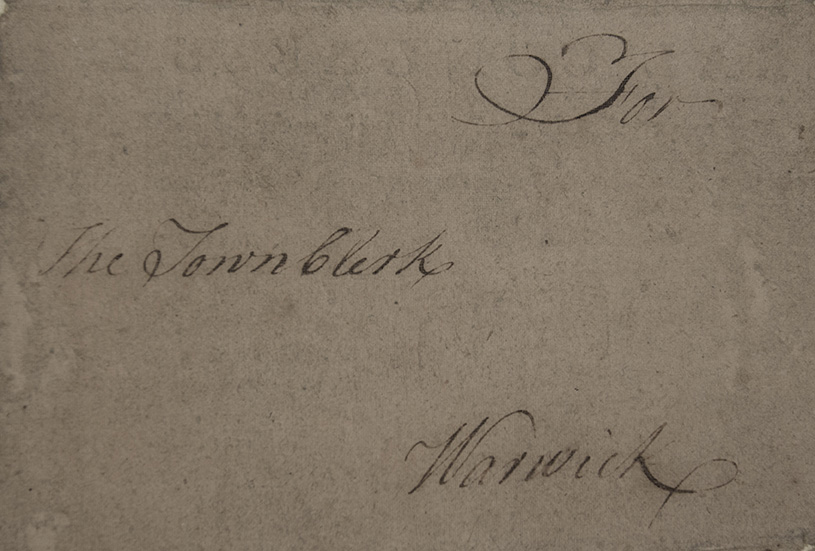 For
The Town Clerk
Warwick